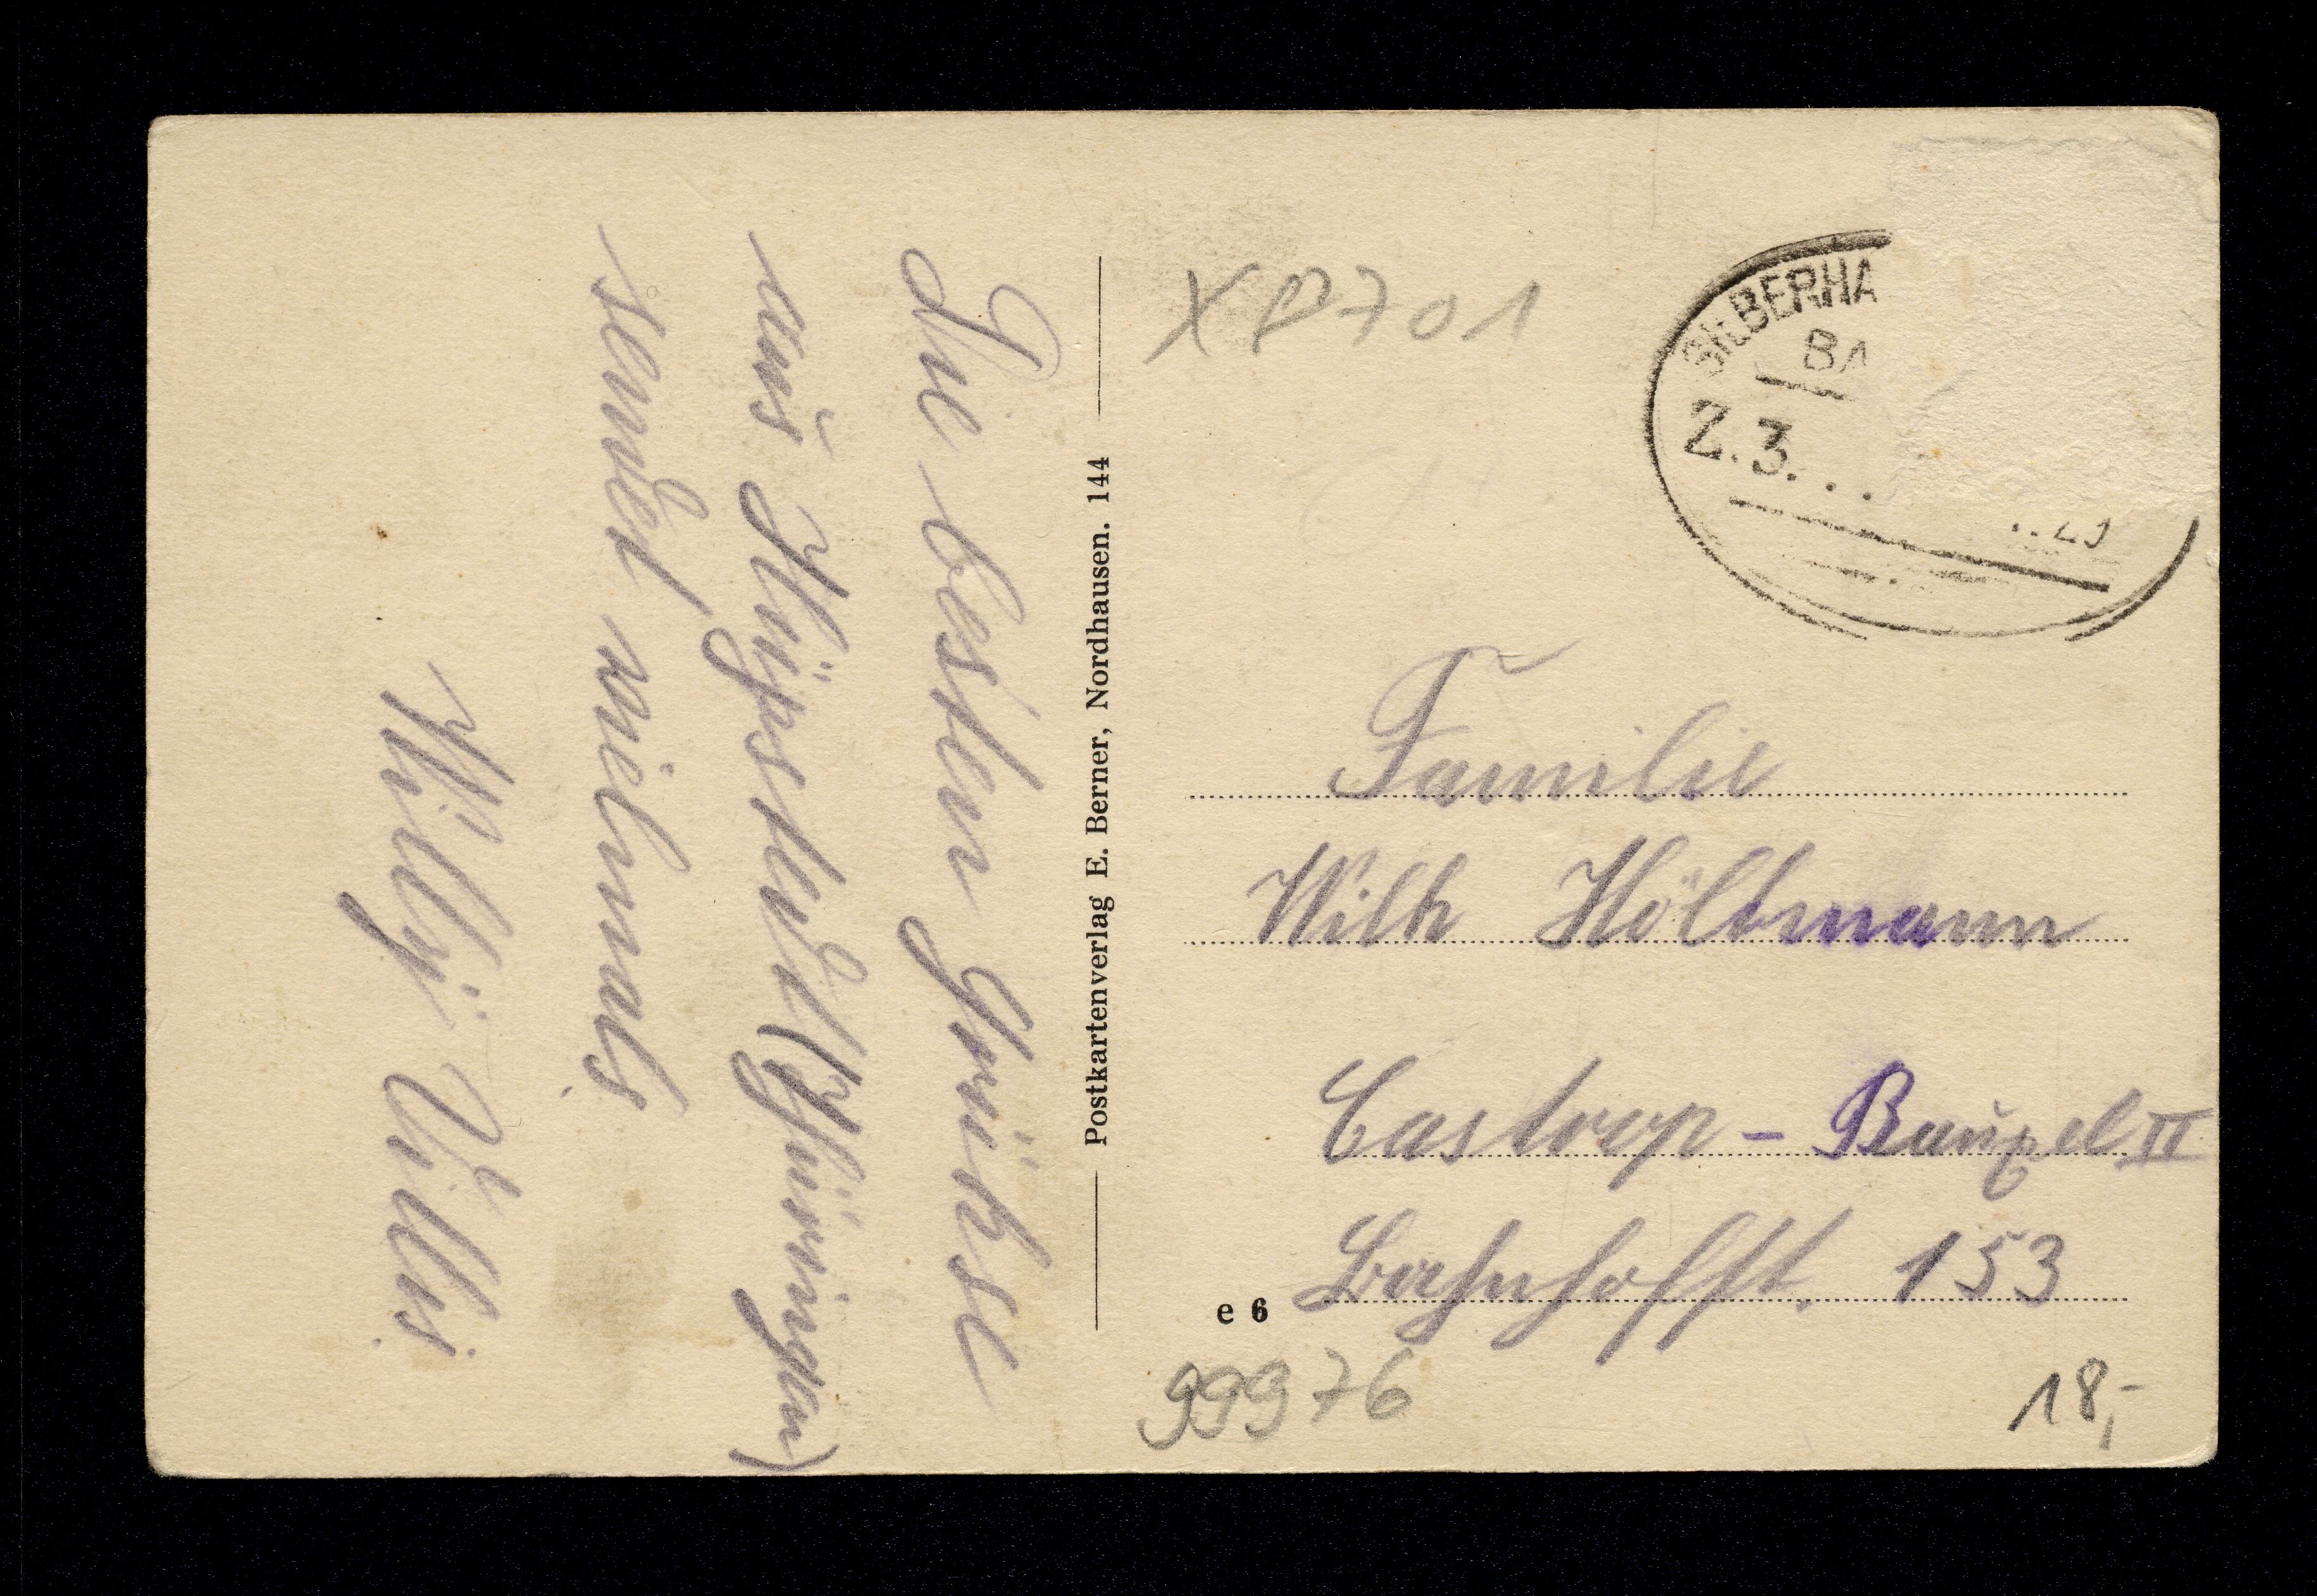 Die besten Grüße
aus Hüpstedt (Thüringen)
sendet vielmals
Willy
Postkartenverlag E. Berner, Nordhausen. 144
XP701
SILBERHA
BA
Z. 3. . .
. . 29
Familie
Wilh Höltmann
Castrop - Rauxel II
Bahnhofst. 153
e 6
99976
18,-